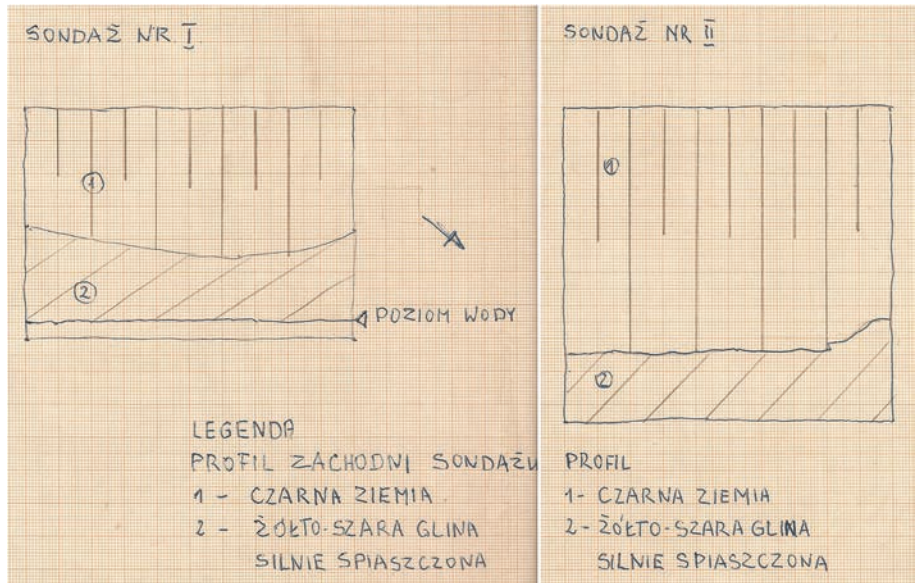 SONDAŻ NR I
1
2
POZIOM WODY
LEGENDA
PROFIL ZACHODNI SONDAŻU
1 - CZARNA ZIEMIA
2 - ŻÓŁTO-SZARA GLINA
SILNIE SPIASZCZONA
SONDAŻ NR II
1
2
PROFIL
1- CZARNA ZIEMIA
2- ŻÓŁTO-SZARA GLINA
SILNIE SPIASZCZONA